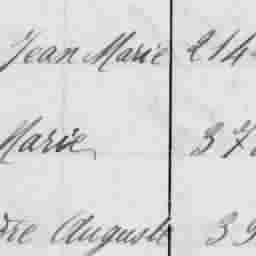 Jean Marie 214
Marie 37
Auguste 39